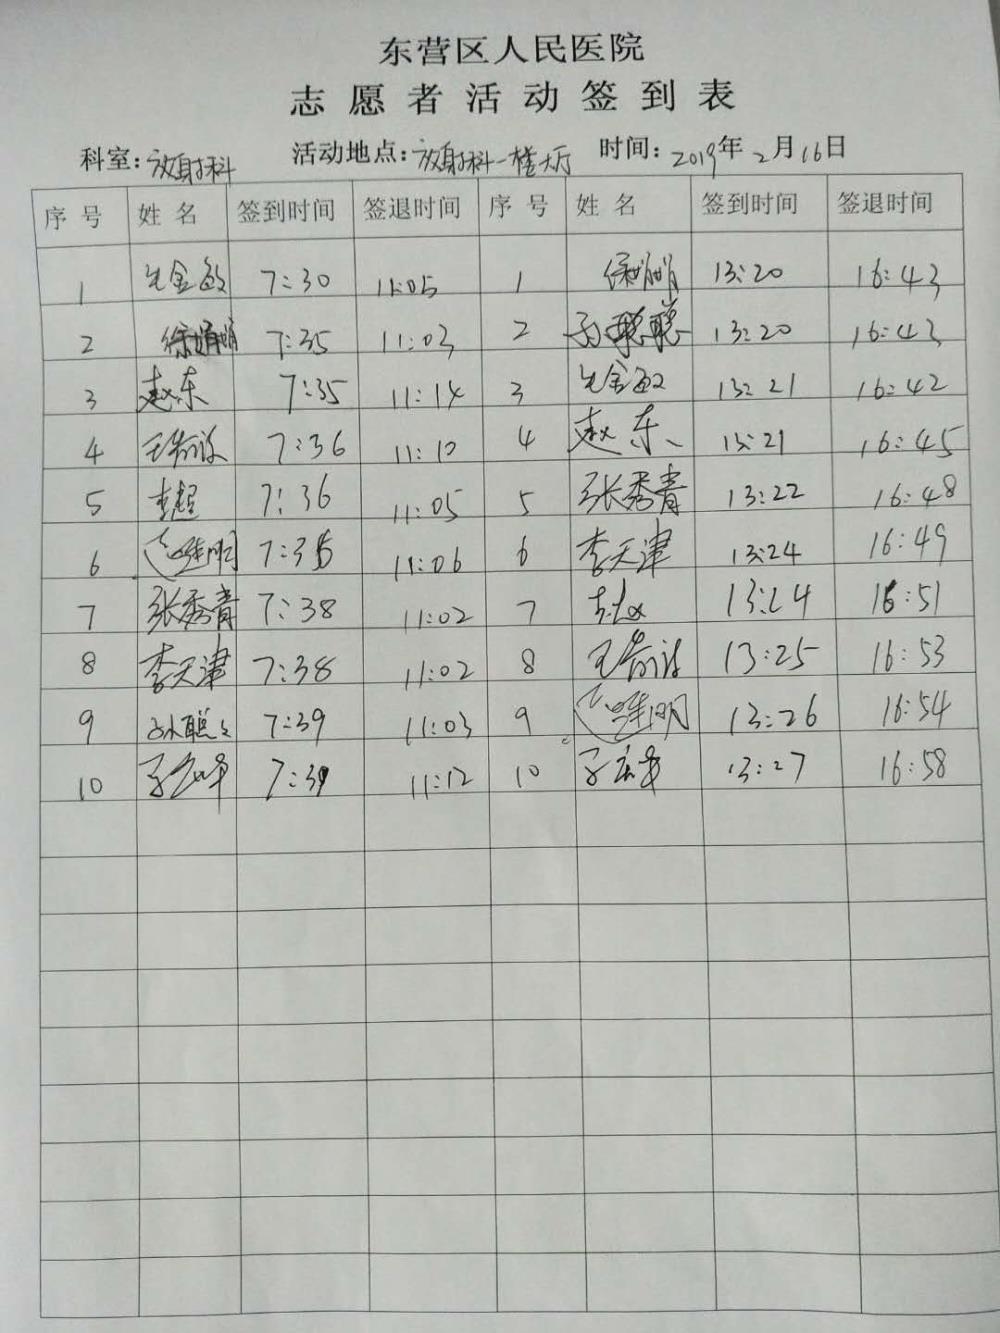 东营区人民医院
志愿者活动签到表
科室：放射科 活动地点：放射科一楼大厅 时间：2019年2月16日
序号 姓名 签到时间 签退时间 序号 姓名 签到时间 签退时间
1 金敏 7:30 11:05 1 徐娟娟 13:20 16:43
2 徐娟娟 7:35 11:03 2 聪聪 13:20 16:43
3 赵东 7:35 11:14 3 金敏 13:21 16:42
4 王 7:36 11:10 4 赵东 13:21 16:45
5 李超 7:36 11:05 5 张秀青 13:22 16:48
6 明 7:35 11:06 6 李天津 13:24 16:49
7 张秀青 7:38 11:02 7 13:24 16:51
8 李天津 7:38 11:02 8 王 13:25 16:53
9 孙聪 7:39 11:03 9 明 13:26 16:54
10 7:39 11:12 10 13:27 16:58